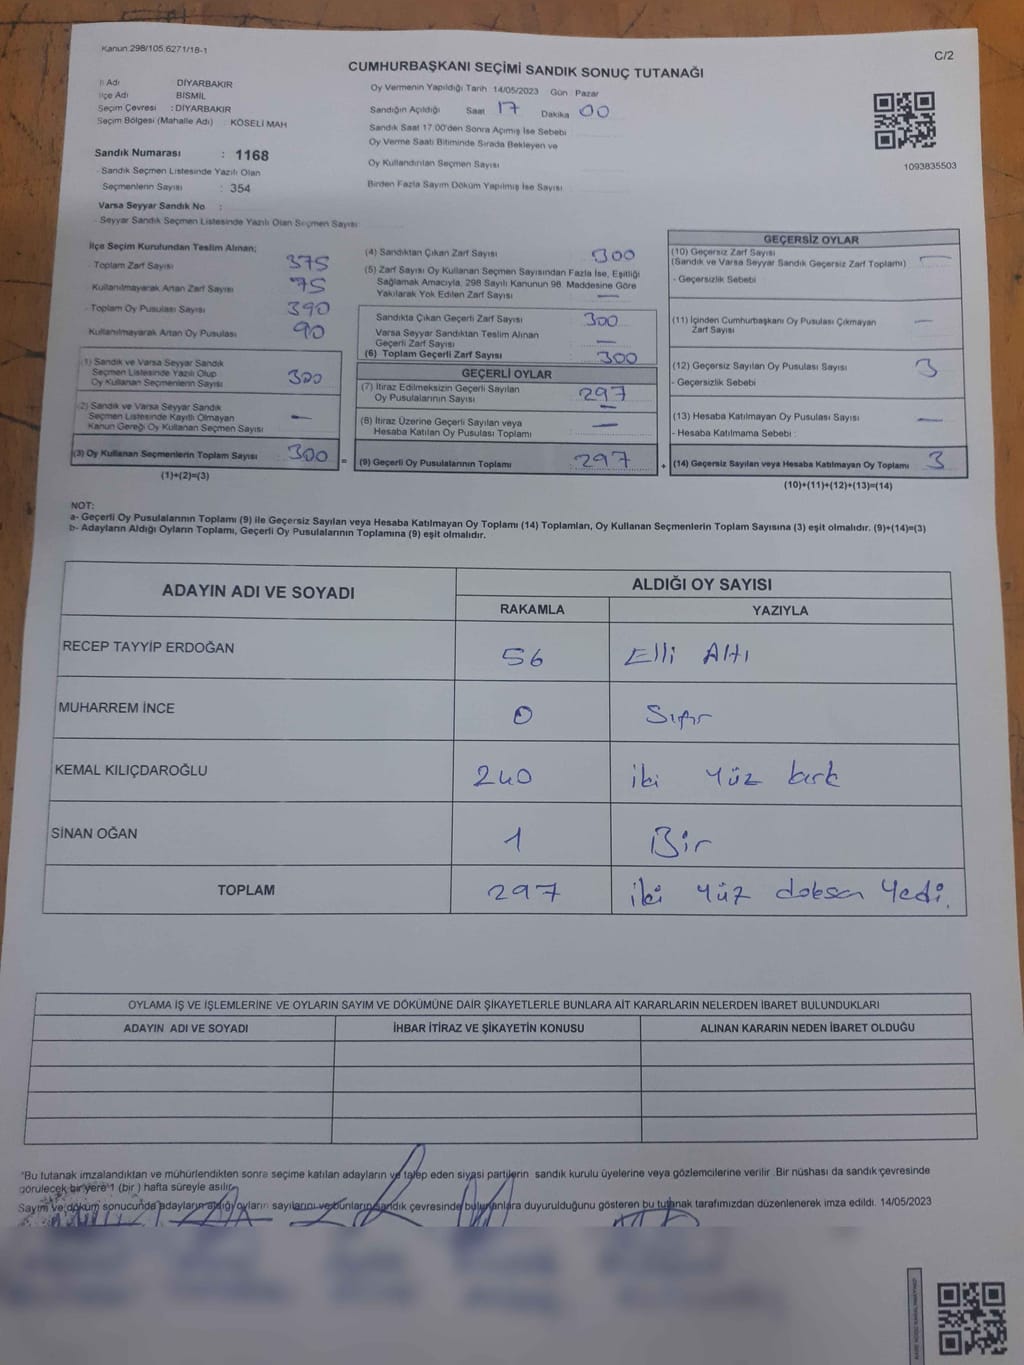 Kanun 298/105.6271/18-1
C/2
CUMHURBAŞKANI SEÇİMİ SANDIK SONUÇ TUTANAĞI
İl Adı DİYARBAKIR
İlçe Adı BİSMİL
Seçim Çevresi : DİYARBAKIR
Seçim Bölgesi (Mahalle Adı) : KÖSELİ MAH
Sandık Numarası : 1168
Sandık Seçmen Listesinde Yazılı Olan
Seçmenlerin Sayısı : 354
Varsa Seyyar Sandık No :
Seyyar Sandık Seçmen Listesinde Yazılı Olan Seçmen Sayısı
Oy Vermenin Yapıldığı Tarih 14/05/2023 Gün Pazar
Sandığın Açıldığı Saat 17 Dakika 00
Sandık Saat 17.00'den Sonra Açımış İse Sebebi
Oy Verme Saati Bitiminde Sırada Bekleyen ve
Oy Kullandırılan Seçmen Sayısı
Birden Fazla Sayım Döküm Yapılmış İse Sayısı
1093835503
İlçe Seçim Kurulundan Teslim Alınan;
Toplam Zarf Sayısı 375
Kullanılmayarak Artan Zarf Sayısı 75
Toplam Oy Pusulası Sayısı 390
Kullanılmayarak Artan Oy Pusulası 90
(1) Sandık ve Varsa Seyyar Sandık
Seçmen Listesinde Yazılı Olup
Oy Kullanan Seçmenlerin Sayısı 300
(2) Sandık ve Varsa Seyyar Sandık
Seçmen Listesinde Kayıtlı Olmayan
Kanun Gereği Oy Kullanan Seçmen Sayısı —
(3) Oy Kullanan Seçmenlerin Toplam Sayısı 300 =
(1)+(2)=(3)
(4) Sandıktan Çıkan Zarf Sayısı 300
(5) Zarf Sayısı Oy Kullanan Seçmen Sayısından Fazla İse, Eşitliği
Sağlamak Amacıyla, 298 Sayılı Kanunun 98. Maddesine Göre
Yakılarak Yok Edilen Zarf Sayısı —
Sandıkta Çıkan Geçerli Zarf Sayısı 300
Varsa Seyyar Sandıktan Teslim Alınan
Geçerli Zarf Sayısı —
(6) Toplam Geçerli Zarf Sayısı 300
GEÇERLİ OYLAR
(7) İtiraz Edilmeksizin Geçerli Sayılan
Oy Pusulalarının Sayısı 297
(8) İtiraz Üzerine Geçerli Sayılan veya
Hesaba Katılan Oy Pusulaları Toplamı —
(9) Geçerli Oy Pusulalarının Toplamı 297 +
GEÇERSİZ OYLAR
(10) Geçersiz Zarf Sayısı —
(Sandık ve Varsa Seyyar Sandık Geçersiz Zarf Toplamı)
- Geçersizlik Sebebi
(11) İçinden Cumhurbaşkanı Oy Pusulası Çıkmayan
Zarf Sayısı —
(12) Geçersiz Sayılan Oy Pusulası Sayısı 3
- Geçersizlik Sebebi
(13) Hesaba Katılmayan Oy Pusulası Sayısı —
- Hesaba Katılmama Sebebi :
(14) Geçersiz Sayılan veya Hesaba Katılmayan Oy Toplamı 3
(10)+(11)+(12)+(13)=(14)
NOT:
a- Geçerli Oy Pusulalarının Toplamı (9) ile Geçersiz Sayılan veya Hesaba Katılmayan Oy Toplamı (14) Toplamları, Oy Kullanan Seçmenlerin Toplam Sayısına (3) eşit olmalıdır. (9)+(14)=(3)
b- Adayların Aldığı Oyların Toplamı, Geçerli Oy Pusulalarının Toplamına (9) eşit olmalıdır.
ADAYIN ADI VE SOYADI
ALDIĞI OY SAYISI
RAKAMLA YAZIYLA
RECEP TAYYİP ERDOĞAN 56 Elli Altı
MUHARREM İNCE 0 Sıfır
KEMAL KILIÇDAROĞLU 240 iki yüz kırk
SİNAN OĞAN 1 Bir
TOPLAM 297 iki yüz doksan yedi.
OYLAMA İŞ VE İŞLEMLERİNE VE OYLARIN SAYIM VE DÖKÜMÜNE DAİR ŞİKAYETLERLE BUNLARA AİT KARARLARIN NELERDEN İBARET BULUNDUKLARI
ADAYIN ADI VE SOYADI İHBAR İTİRAZ VE ŞİKAYETİN KONUSU ALINAN KARARIN NEDEN İBARET OLDUĞU
*Bu tutanak imzalandıktan ve mühürlendikten sonra seçime katılan adayların ve talep eden siyasi partilerin sandık kurulu üyelerine veya gözlemcilerine verilir. Bir nüshası da sandık çevresinde
görülecek bir yere 1 (bir ) hafta süreyle asılır.
Sayım ve döküm sonucunda adayların aldığı oyların sayılarını ve bunların sandık çevresinde bulunanlara duyurulduğunu gösteren bu tutanak tarafımızdan düzenlenerek imza edildi. 14/05/2023